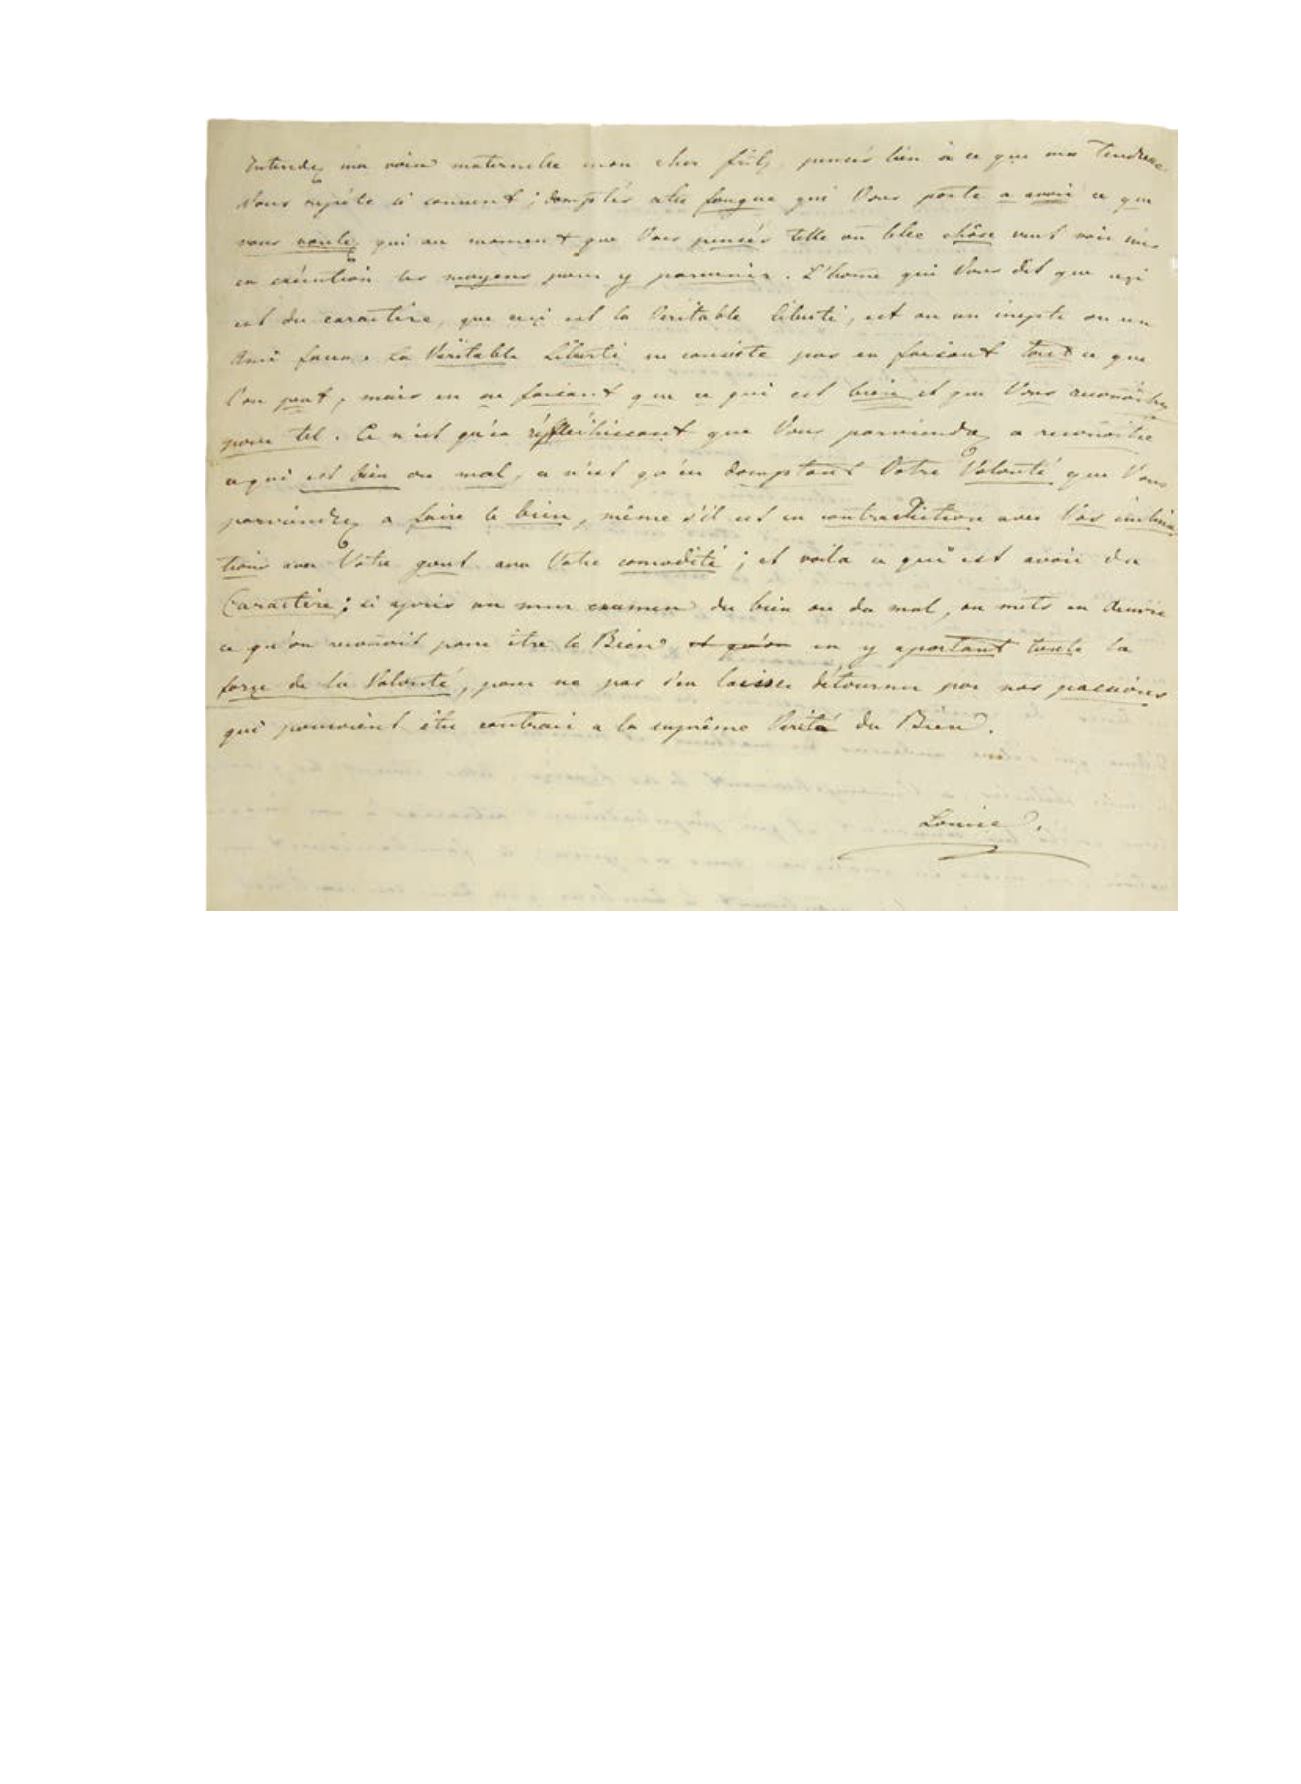 Entendez ma voix maternelle mon cher fritz, pensés bien à ce que ma Tendresse
Vous repéte si souvent; domptés cette fougue qui Vous porte a avoir ce que
vous voulez, qui au moment que Vous pensés telle ou telle chôse veut voir mis
en exécution les moyens pour y parvenir. L'home qui Vous dit que ceçi
est du caractère, que ceçi est la Veritable liberté, est ou un inepte ou un
Ami faux. la Véritable Liberté ne consiste pas en faisant tout ce que
l'on peut, mais en ne faisant que ce qui est bien et que Vous reconoitrez
pour tel. Ce n'est qu'en réfléchissant que Vous parviendrez a reconoitre
ce qui est bien ou mal, ce n'est qu'en domptant Votre Volonté que Vous
parviendrez a faire le bien, même s'il est en contradiction avec Vos inclina
tions avec Votre gout avec Votre comodité; et voila ce qui est avoir du
Caractère; si après un mur examen du bien ou du mal, on mets en Œuvre
ce qu'on reconoit pour être le Bien et qu'on en y aportant toute la
force de la Volonté, pour ne pas s'en laisser détourner par nos passions
qui pouroient être contrair a la suprême Verité du Bien.
Louise.